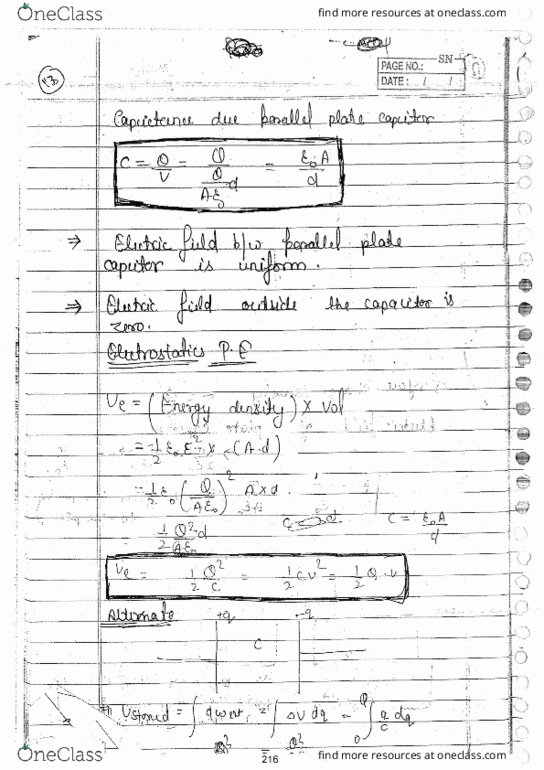 OneClass
find more resources at oneclass.com
130
SN
PAGE NO.:
DATE: / /
Capacitance due parallel plate capacitor
C = Q/V = Q/(Q/(Aε₀) d) = ε₀A/d
⇒ Electric field b/w parallel plate
capacitor is uniform.
⇒ Electric field outside the capacitor is
zero.
Electrostatics P.E
Ue = (Energy density) × Vol
= 1/2 ε₀E² × (A.d)
= 1/2 ε₀ (Q/(Aε₀))² A×d
C = ε₀A/d
1/2 Q²d/(Aε₀)
Ue = 1/2 Q²/C = 1/2 CV² = 1/2 Q.V
Alternate
+q -q
C
Ustored = ∫ dwext = ∫ ΔV dq = ₀∫^Q q/c dq
OneClass
216
find more resources at oneclass.com